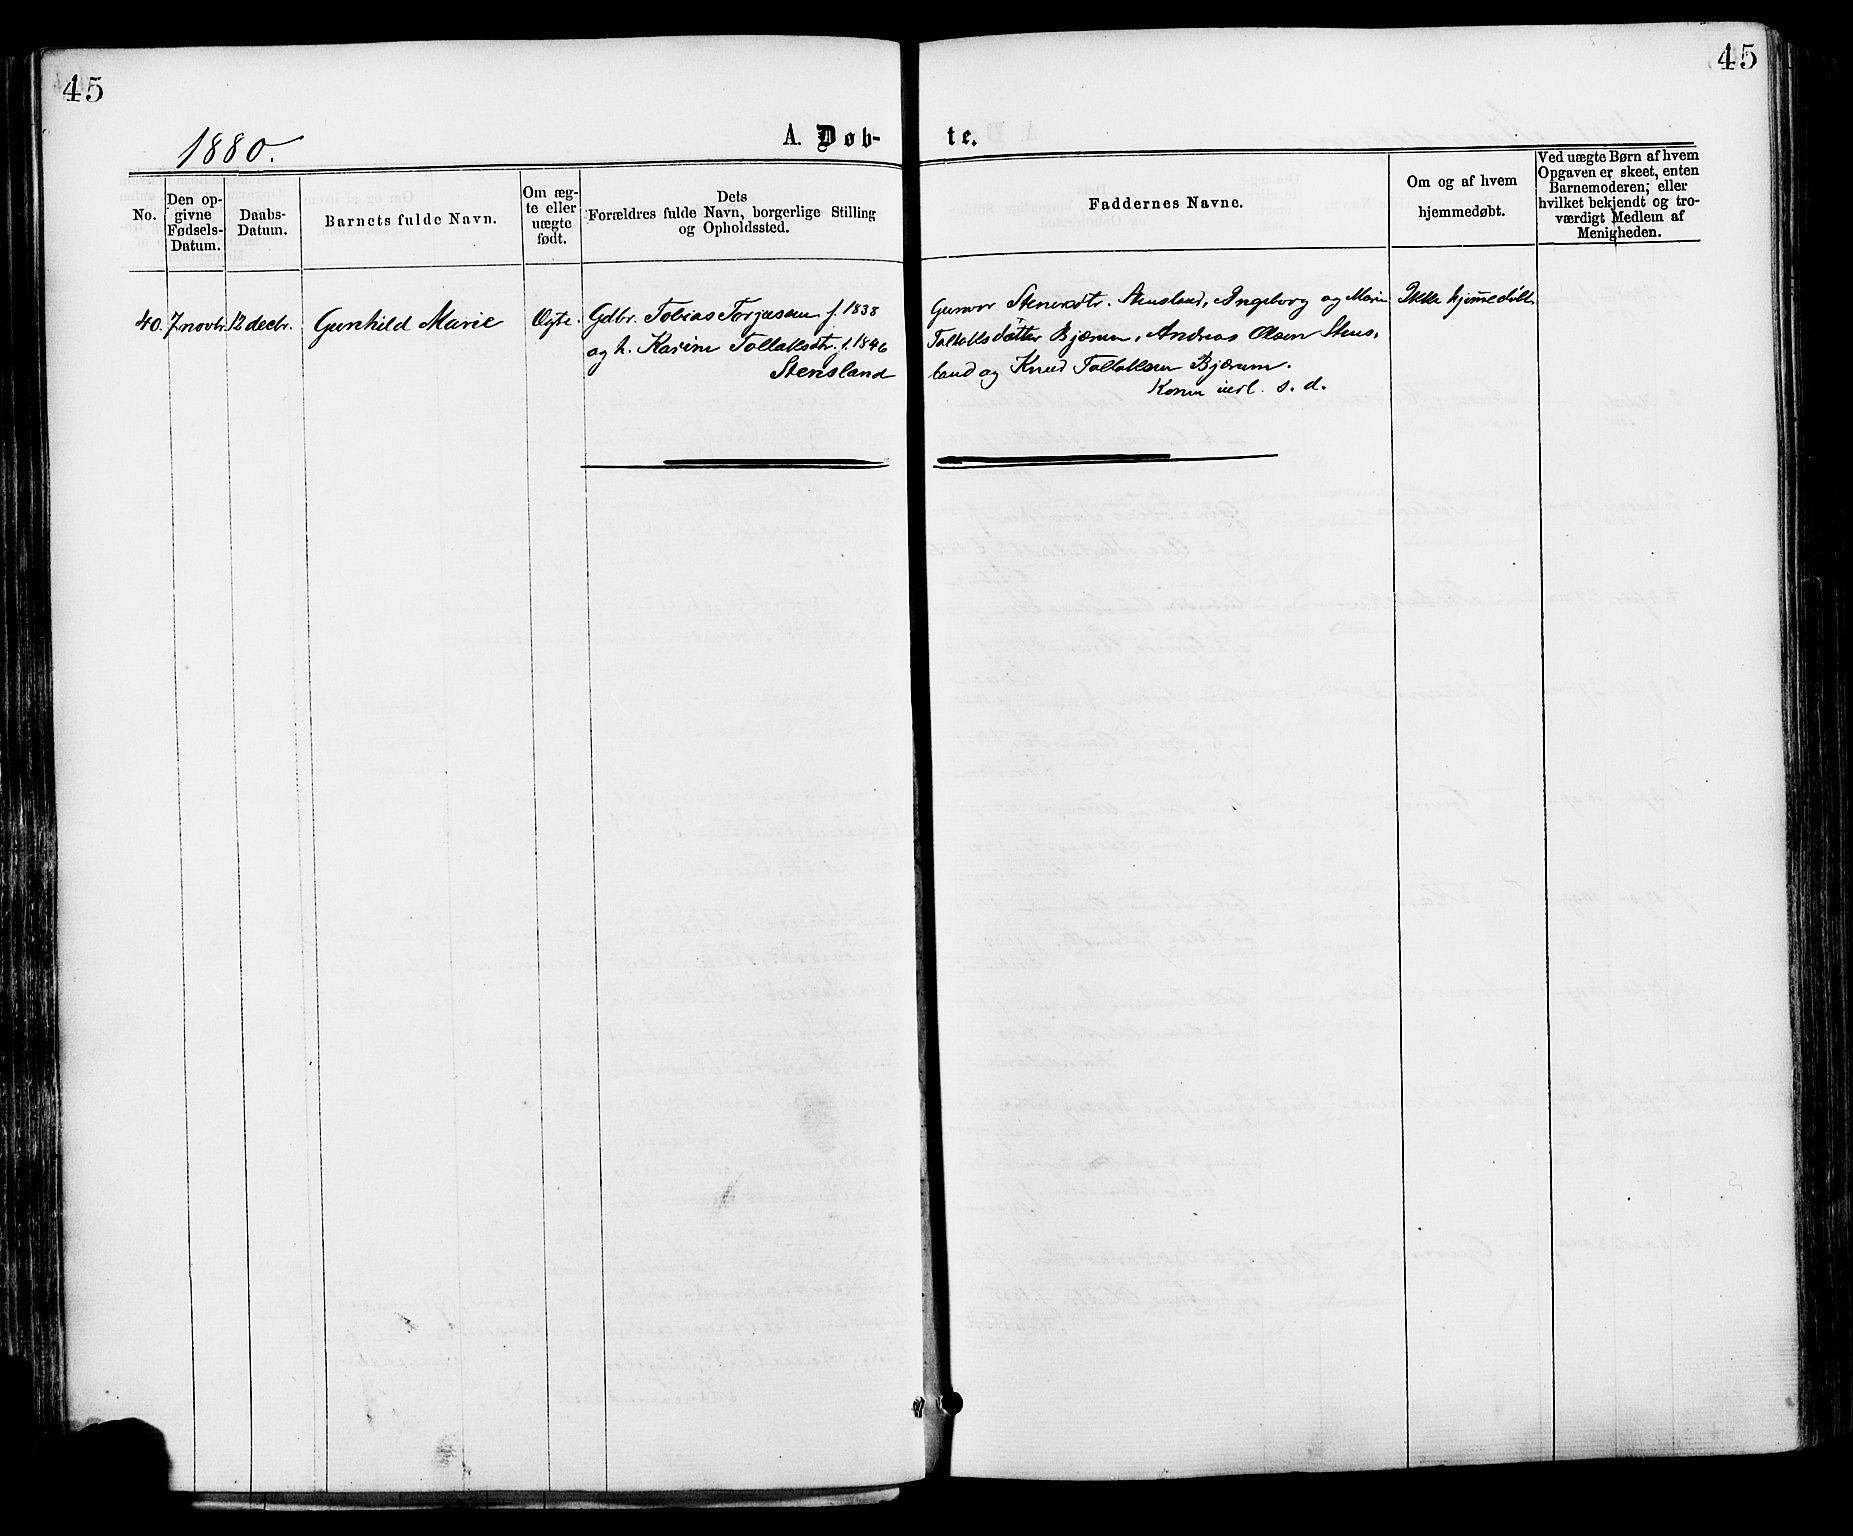 45
45
1880.
A. Døb-
te.
No.
Den op-
givne
Fødsels-
Datum.
Daabs-
Datum.
Barnets fulde Navn.
Om æg-
te eller
uægte
født.
Dets
Forældres fulde Navn, borgerlige Stilling
og Opholdssted.
Faddernes Navne.
Om og af hvem
hjemmedøbt.
Ved uægte Børn af hvem
Opgaven er skeet, enten
Barnemoderen; eller
hvilket bekjendt og tro-
værdigt Medlem af
Menigheden.
40.
7 novbr.
12 decbr.
Gunhild Marie
Ægte.
Gdbr. Tobias Torjussen f. 1838
og h. Karine Tollaksdtr. f. 1846
Stensland
Gunvor Stenersdtr. Stensland, Ingeborg og Marie
Tollaksdatter Bjærum, Andreas Olsen Stens-
land og Knud Tollaksen Bjærum.
s. d.
Ikke hjemmedøbt